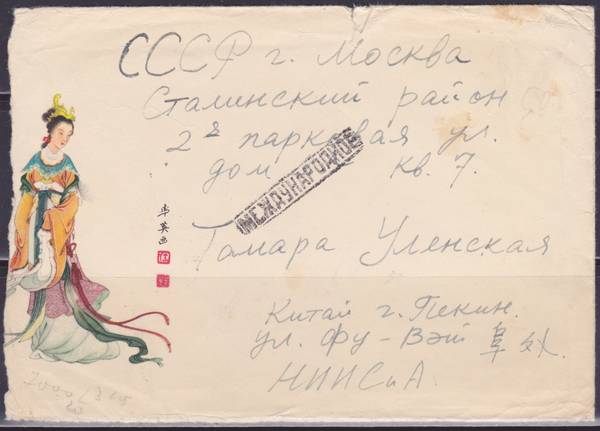 СССР г. Москва
Сталинский район
2я парковая ул.
дом кв. 7.
МЕЖДУНАРОДНОЕ
Тамара Уленская
Китай г. Пекин.
ул. Фу-Вэй 阜
НИИСиА.
华英画